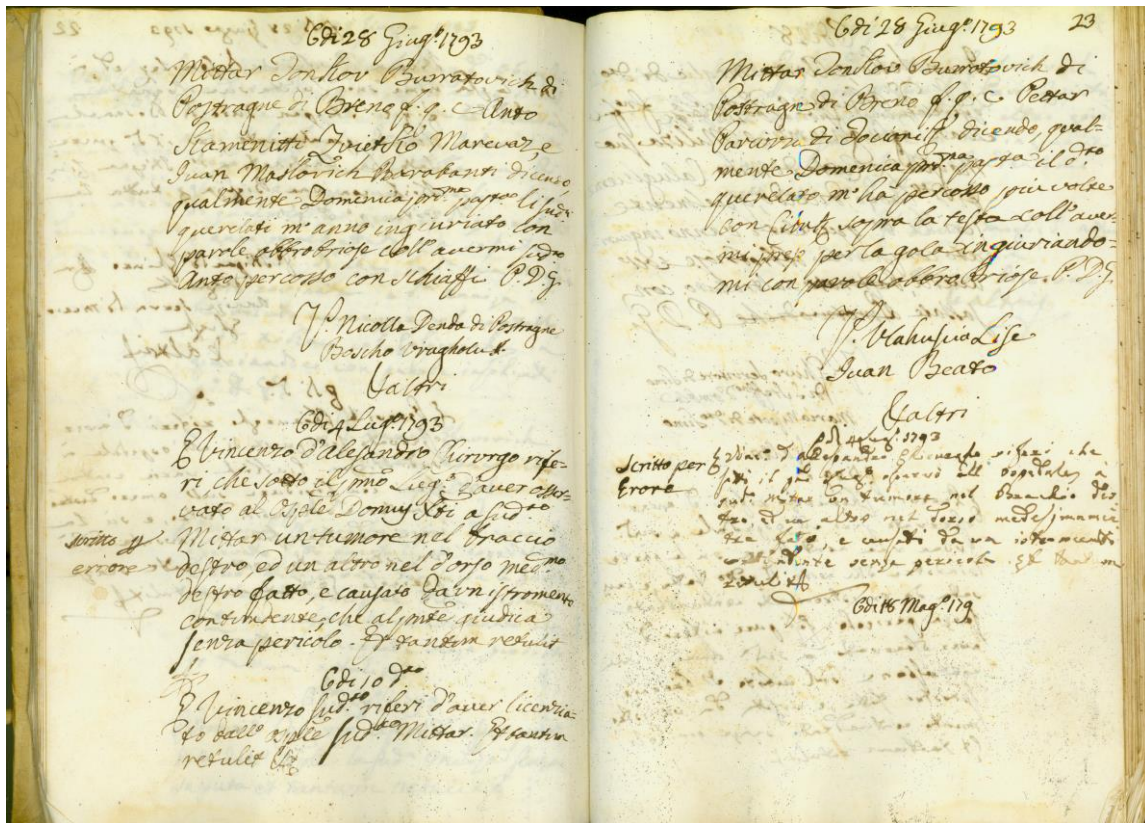 Adi 28 Giug.º 1793
Mittar Donkov Burratovich di
Postragne di Breno f. q. c Anto
Stamenitti Marevaz, e
Ivan Maslovich Barabanti dicendo,
qualmente Domenica pr.ma pas.ta li sud.ti
querelati m'anno ingiuriato con
parole obbrobriose coll'avermi sud.to
Anto percosso con schiaffi P. D. G.
T. Nicolla Denda di Postragne
Boscho
& altri
Adi 4 Lug.º 1793
E Vincenzo d'Alesandro Chirurgo rife-
ri che sotto il p.mo Lug.º d'aver osser-
vato al Osple Domus Xti a sud.to
scritto p
errore
Mittar un tumore nel braccio
destro, ed un altro nel dorso med.mo
destro fatto, e causato da un istromento
contundente, che al p.nte giudica
senza pericolo - Et tantum retulit
Adi 10 d.to
E Vincenzo sud.to riferi d'aver licenzia-
to dall' Osple sud.to Mittar. Et tantum
retulit
23
Adi 28 Giug.º 1793
Mittar Donkov Burratovich di
Postragne di Breno f. q. c Pettar
di dicendo, qual-
mente Domenica pr.ma pas.ta il d.to
querelato m'ha percosso più volte
con sopra la testa coll'aver-
mi preso per la gola ingiuriando-
mi con parole obbrobriose P. D. G.
T. Vlahusia Lise
Ivan Beato
& altri
Adi 4 Lug.º 1793
Scritto per
Erore
E Vinc.º d'Alesandro Chirurgo riferi che
sotto il p.mo Lug.º osservò all' Ospitale, a
sud. Mittar un tumore nel Braccio des-
tro, ed un altro nel dorso medesimamen-
te e causati da un istromento
contundente senza pericolo. Et tantum
retulit
Adi 18 Mag.º 179